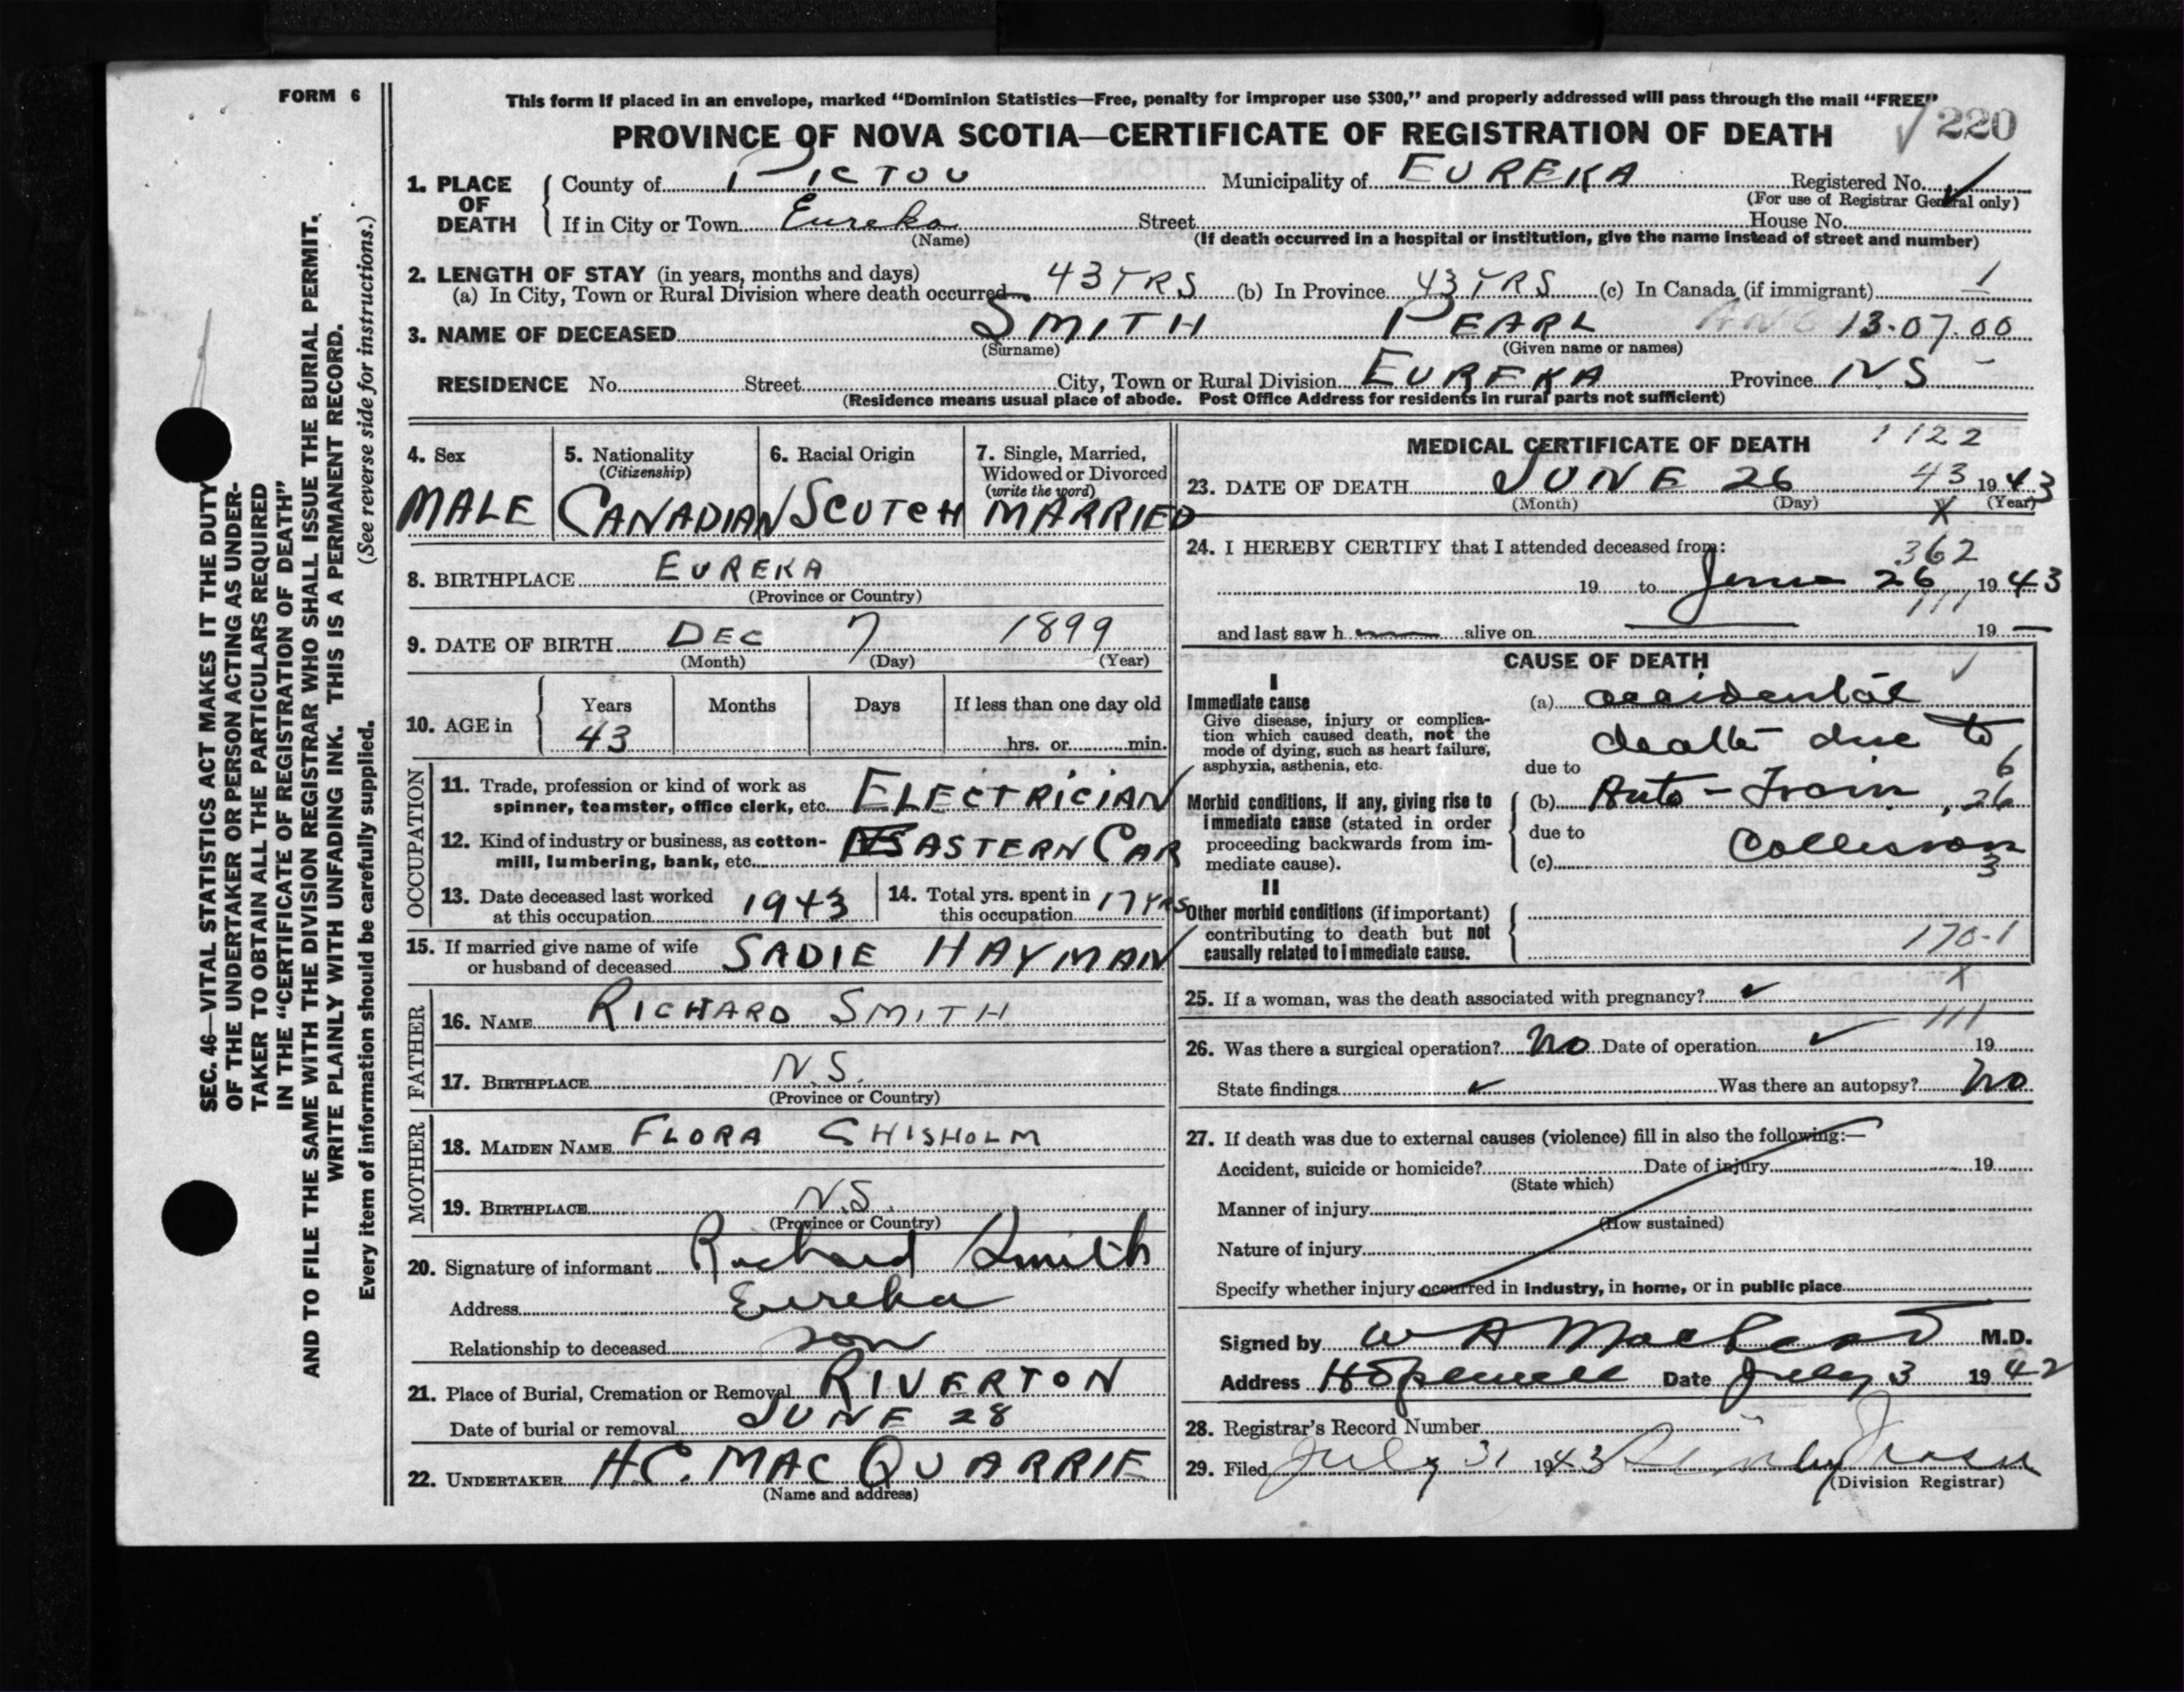 FORM 6
This form if placed in an envelope, marked “Dominion Statistics—Free, penalty for improper use $300,” and properly addressed will pass through the mail “FREE”
PROVINCE OF NOVA SCOTIA—CERTIFICATE OF REGISTRATION OF DEATH
220
1. PLACE OF DEATH
County of PICTOU Municipality of EUREKA Registered No.
(For use of Registrar General only)
If in City or Town Eureka Street House No.
(Name) (If death occurred in a hospital or institution, give the name instead of street and number)
2. LENGTH OF STAY (in years, months and days)
(a) In City, Town or Rural Division where death occurred 43 YRS (b) In Province 43 YRS (c) In Canada (if immigrant)
3. NAME OF DECEASED SMITH PEARL 13-07-00
(Surname) (Given name or names)
RESIDENCE No. Street City, Town or Rural Division EUREKA Province NS
(Residence means usual place of abode. Post Office Address for residents in rural parts not sufficient)
4. Sex
MALE
5. Nationality
(Citizenship)
CANADIAN
6. Racial Origin
SCOTCH
7. Single, Married,
Widowed or Divorced
(write the word)
MARRIED
8. BIRTHPLACE EUREKA
(Province or Country)
9. DATE OF BIRTH DEC 7 1899
(Month) (Day) (Year)
10. AGE in
Years Months Days If less than one day old
43 hrs. or min.
OCCUPATION
11. Trade, profession or kind of work as
spinner, teamster, office clerk, etc. ELECTRICIAN
12. Kind of industry or business, as cotton-
mill, lumbering, bank, etc. EASTERN CAR
13. Date deceased last worked
at this occupation 1943
14. Total yrs. spent in
this occupation 17 YRS
15. If married give name of wife
or husband of deceased SADIE HAYMAN
FATHER
16. NAME RICHARD SMITH
17. BIRTHPLACE N.S.
(Province or Country)
MOTHER
18. MAIDEN NAME FLORA CHISHOLM
19. BIRTHPLACE N.S.
(Province or Country)
20. Signature of informant Richard Smith
Address Eureka
Relationship to deceased son
21. Place of Burial, Cremation or Removal RIVERTON
Date of burial or removal JUNE 28
22. UNDERTAKER H.C. MAC QUARRIE
(Name and address)
MEDICAL CERTIFICATE OF DEATH
1122
23. DATE OF DEATH JUNE 26 43 1943
(Month) (Day) (Year)
X
24. I HEREBY CERTIFY that I attended deceased from:
362
19 to June 26 1943
111
and last saw h alive on 19
CAUSE OF DEATH
I
Immediate cause
Give disease, injury or complica-
tion which caused death, not the
mode of dying, such as heart failure,
asphyxia, asthenia, etc.
(a) accidental
death due to
due to
6
Morbid conditions, if any, giving rise to
immediate cause (stated in order
proceeding backwards from im-
mediate cause).
(b) Auto - Train 26
due to
(c) Collision
3
II
Other morbid conditions (if important)
contributing to death but not
causally related to immediate cause.
170-1
X
25. If a woman, was the death associated with pregnancy?
111
26. Was there a surgical operation? No Date of operation 19
State findings Was there an autopsy? No
27. If death was due to external causes (violence) fill in also the following:—
Accident, suicide or homicide? Date of injury 19
(State which)
Manner of injury
(How sustained)
Nature of injury
Specify whether injury occurred in industry, in home, or in public place
Signed by W A MacLeod M.D.
Address Hopewell Date July 3 1942
28. Registrar's Record Number
29. Filed July 31 1943
(Division Registrar)
SEC. 46—VITAL STATISTICS ACT MAKES IT THE DUTY
OF THE UNDERTAKER OR PERSON ACTING AS UNDER-
TAKER TO OBTAIN ALL THE PARTICULARS REQUIRED
IN THE “CERTIFICATE OF REGISTRATION OF DEATH”
AND TO FILE THE SAME WITH THE DIVISION REGISTRAR WHO SHALL ISSUE THE BURIAL PERMIT.
WRITE PLAINLY WITH UNFADING INK. THIS IS A PERMANENT RECORD.
Every item of information should be carefully supplied. (See reverse side for instructions.)